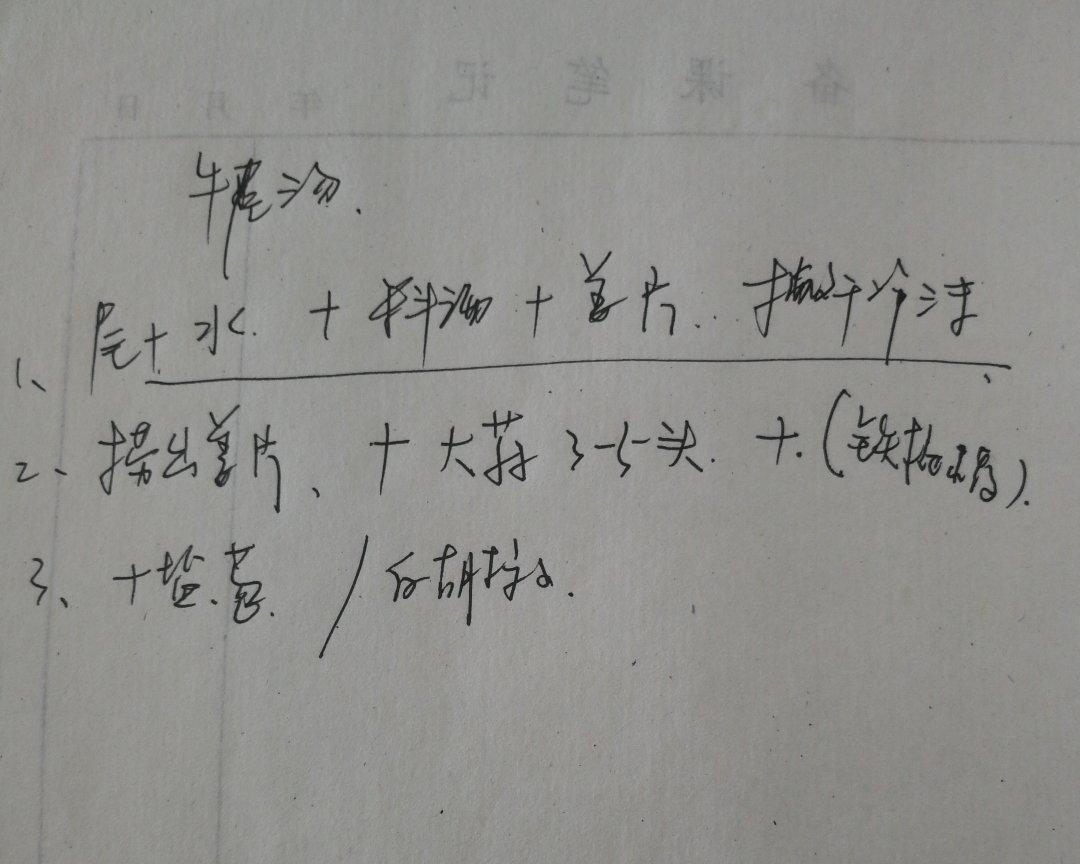 备课笔记
年 月 日
牛尾汤.
1、尾+水.+料酒+姜片..撇干净
2、捞出姜片、+大蒜3-5头.+.(铁棍).
3、+盐.葱./白胡椒.